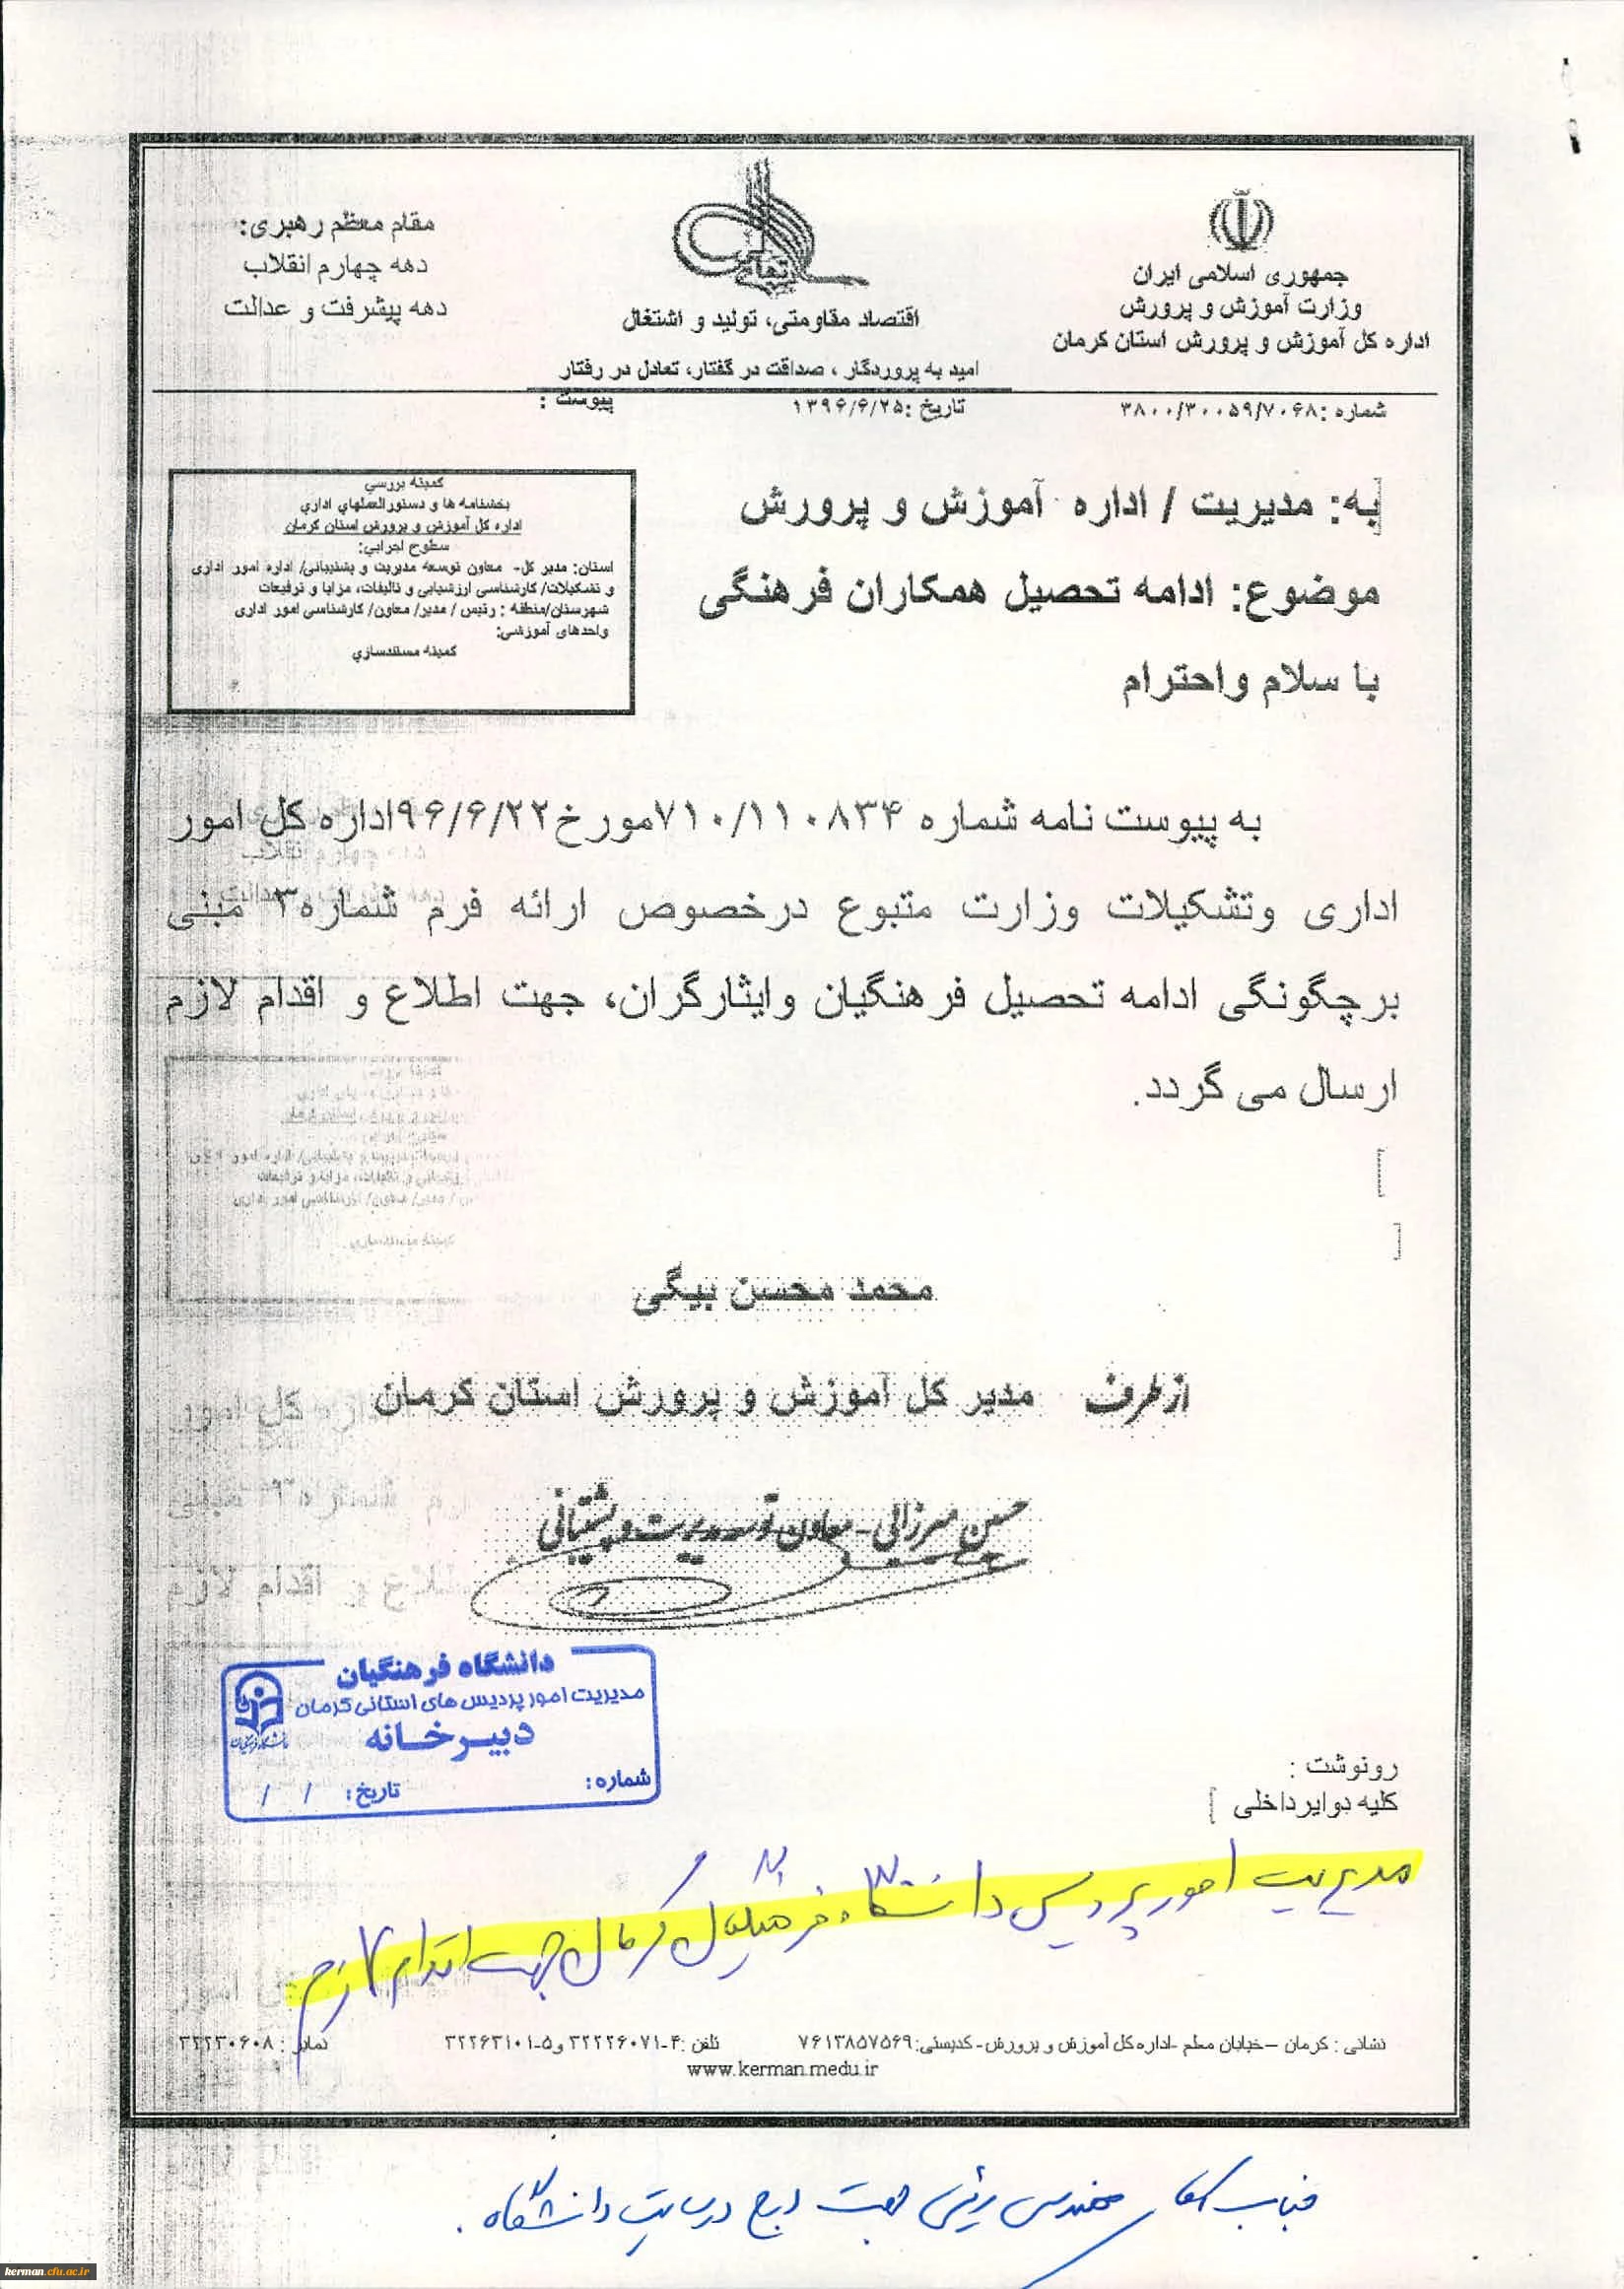 جمهوری اسلامی ایران
وزارت آموزش و پرورش
اداره کل آموزش و پرورش استان کرمان
اقتصاد مقاومتی، تولید و اشتغال
امید به پروردگار ، صداقت در گفتار، تعادل در رفتار
مقام معظم رهبری:
دهه چهارم انقلاب
دهه پیشرفت و عدالت
شماره :۳۸۰۰/۳۰۰۵۹/۷۰۶۸
تاریخ :۱۳۹۶/۶/۲۵
پیوست :
به: مدیریت / اداره آموزش و پرورش
موضوع: ادامه تحصیل همکاران فرهنگی
با سلام واحترام
کمیته بررسي
بخشنامه ها و دستورالعملهاي اداري
اداره کل آموزش و پرورش استان کرمان
سطوح اجرایي:
استان: مدیر کل- معاون توسعه مدیریت و پشتیبانی/ اداره امور اداری
و تشکیلات/ کارشناسی ارزشیابی و تالیفات، مزایا و ترفیعات
شهرستان/منطقه : رئیس / مدیر/ معاون/ کارشناسی امور اداری
واحدهای آموزشی:
کمیته مستندسازي
به پیوست نامه شماره ۷۱۰/۱۱۰۸۳۴مورخ۹۶/۶/۲۲اداره کل امور
اداری وتشکیلات وزارت متبوع درخصوص ارائه فرم شماره۳ مبنی
برچگونگی ادامه تحصیل فرهنگیان وایثارگران، جهت اطلاع و اقدام لازم
ارسال می گردد.
محمد محسن بیگی
مدیر کل آموزش و پرورش استان کرمان
ازطرف
حسین میرزائی - معاون توسعه مدیریت و پشتیبانی
دانشگاه فرهنگیان
مدیریت امور پردیس های استانی کرمان
دبیرخانه
شماره:
تاریخ: / /
رونوشت :
کلیه دوایرداخلی
مدیریت امور پردیس دانشگاه فرهنگیان کرمان جهت اقدام لازم
نشانی : کرمان –خیابان معلم -اداره کل آموزش و پرورش- کدپستی:۷۶۱۳۸۵۷۵۶۹
تلفن :۴-۳۲۲۲۶۰۷۱ و۵-۳۲۲۶۳۱۰۱
نمابر : ۳۲۲۳۰۶۰۸
www.kerman.medu.ir
جناب آقای مهندس رئیسی جهت درج در سایت دانشگاه .
kerman.cfu.ac.ir